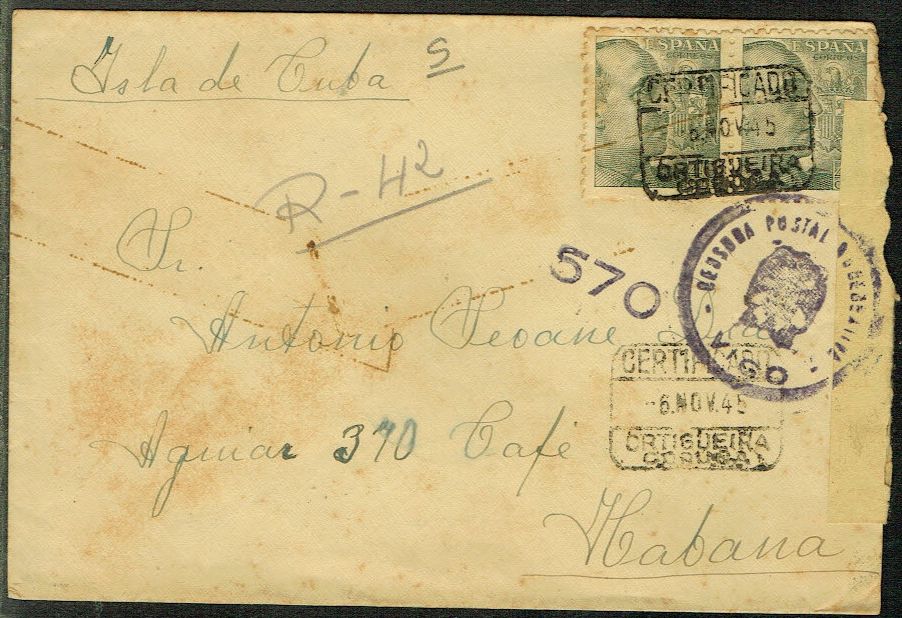 Isla de Cuba
S
ESPAÑA
CORREOS
ESPAÑA
CORREOS
CERTIFICADO
6.NOV.45
ORTIGUEIRA
R-42
CENSURA POSTAL
570
Sr.
Antonio Seoane
CERTIFICADO
-6.NOV.45
ORTIGUEIRA
CORUÑA
Aguiar 370 Café
Habana